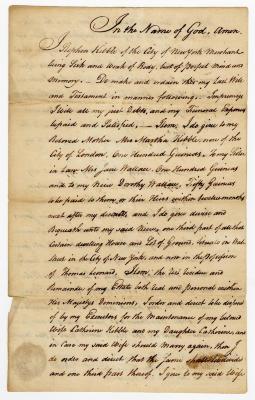 In the Name of God, Amen.
I Stephen Kibble of the City of New York Merchant
being Sick and Weak of Body, but of perfect Mind and
Memory — Do make and ordain this my Last Will
and Testament in manner following. Imprimis
I Will all my just Debts, and my Funeral Expences
be paid and Satisfied, — Item, I do give to my
Beloved Mother Mrs Martha Kibble, now of the
City of London, One Hundred Guineas, to my Sister
in Law Mrs Jane Wallace, One Hundred Guineas
and to my Niece Dorothy Wallace, Fifty Guineas
to be paid to them, or their Heirs within twelve months
next after my decease, and I do give devise and
Bequeath unto my said Niece, one third part of all that
Certain dwelling House and Lot of Ground, situate in
Street in the City of New York, and now in the Possession
of Thomas Leonard, Item, the rest residue and
Remainder of my Estate both real and personal within
His Majestys Dominions, I order and direct to be disposed
of by my Executors for the Maintenance of my beloved
Wife Catherine Kibble and my Daughter Catherine, and
in Case my said Wife should Marry again, then I
do order and direct that the same
and one third part thereof, I give to my said Wife